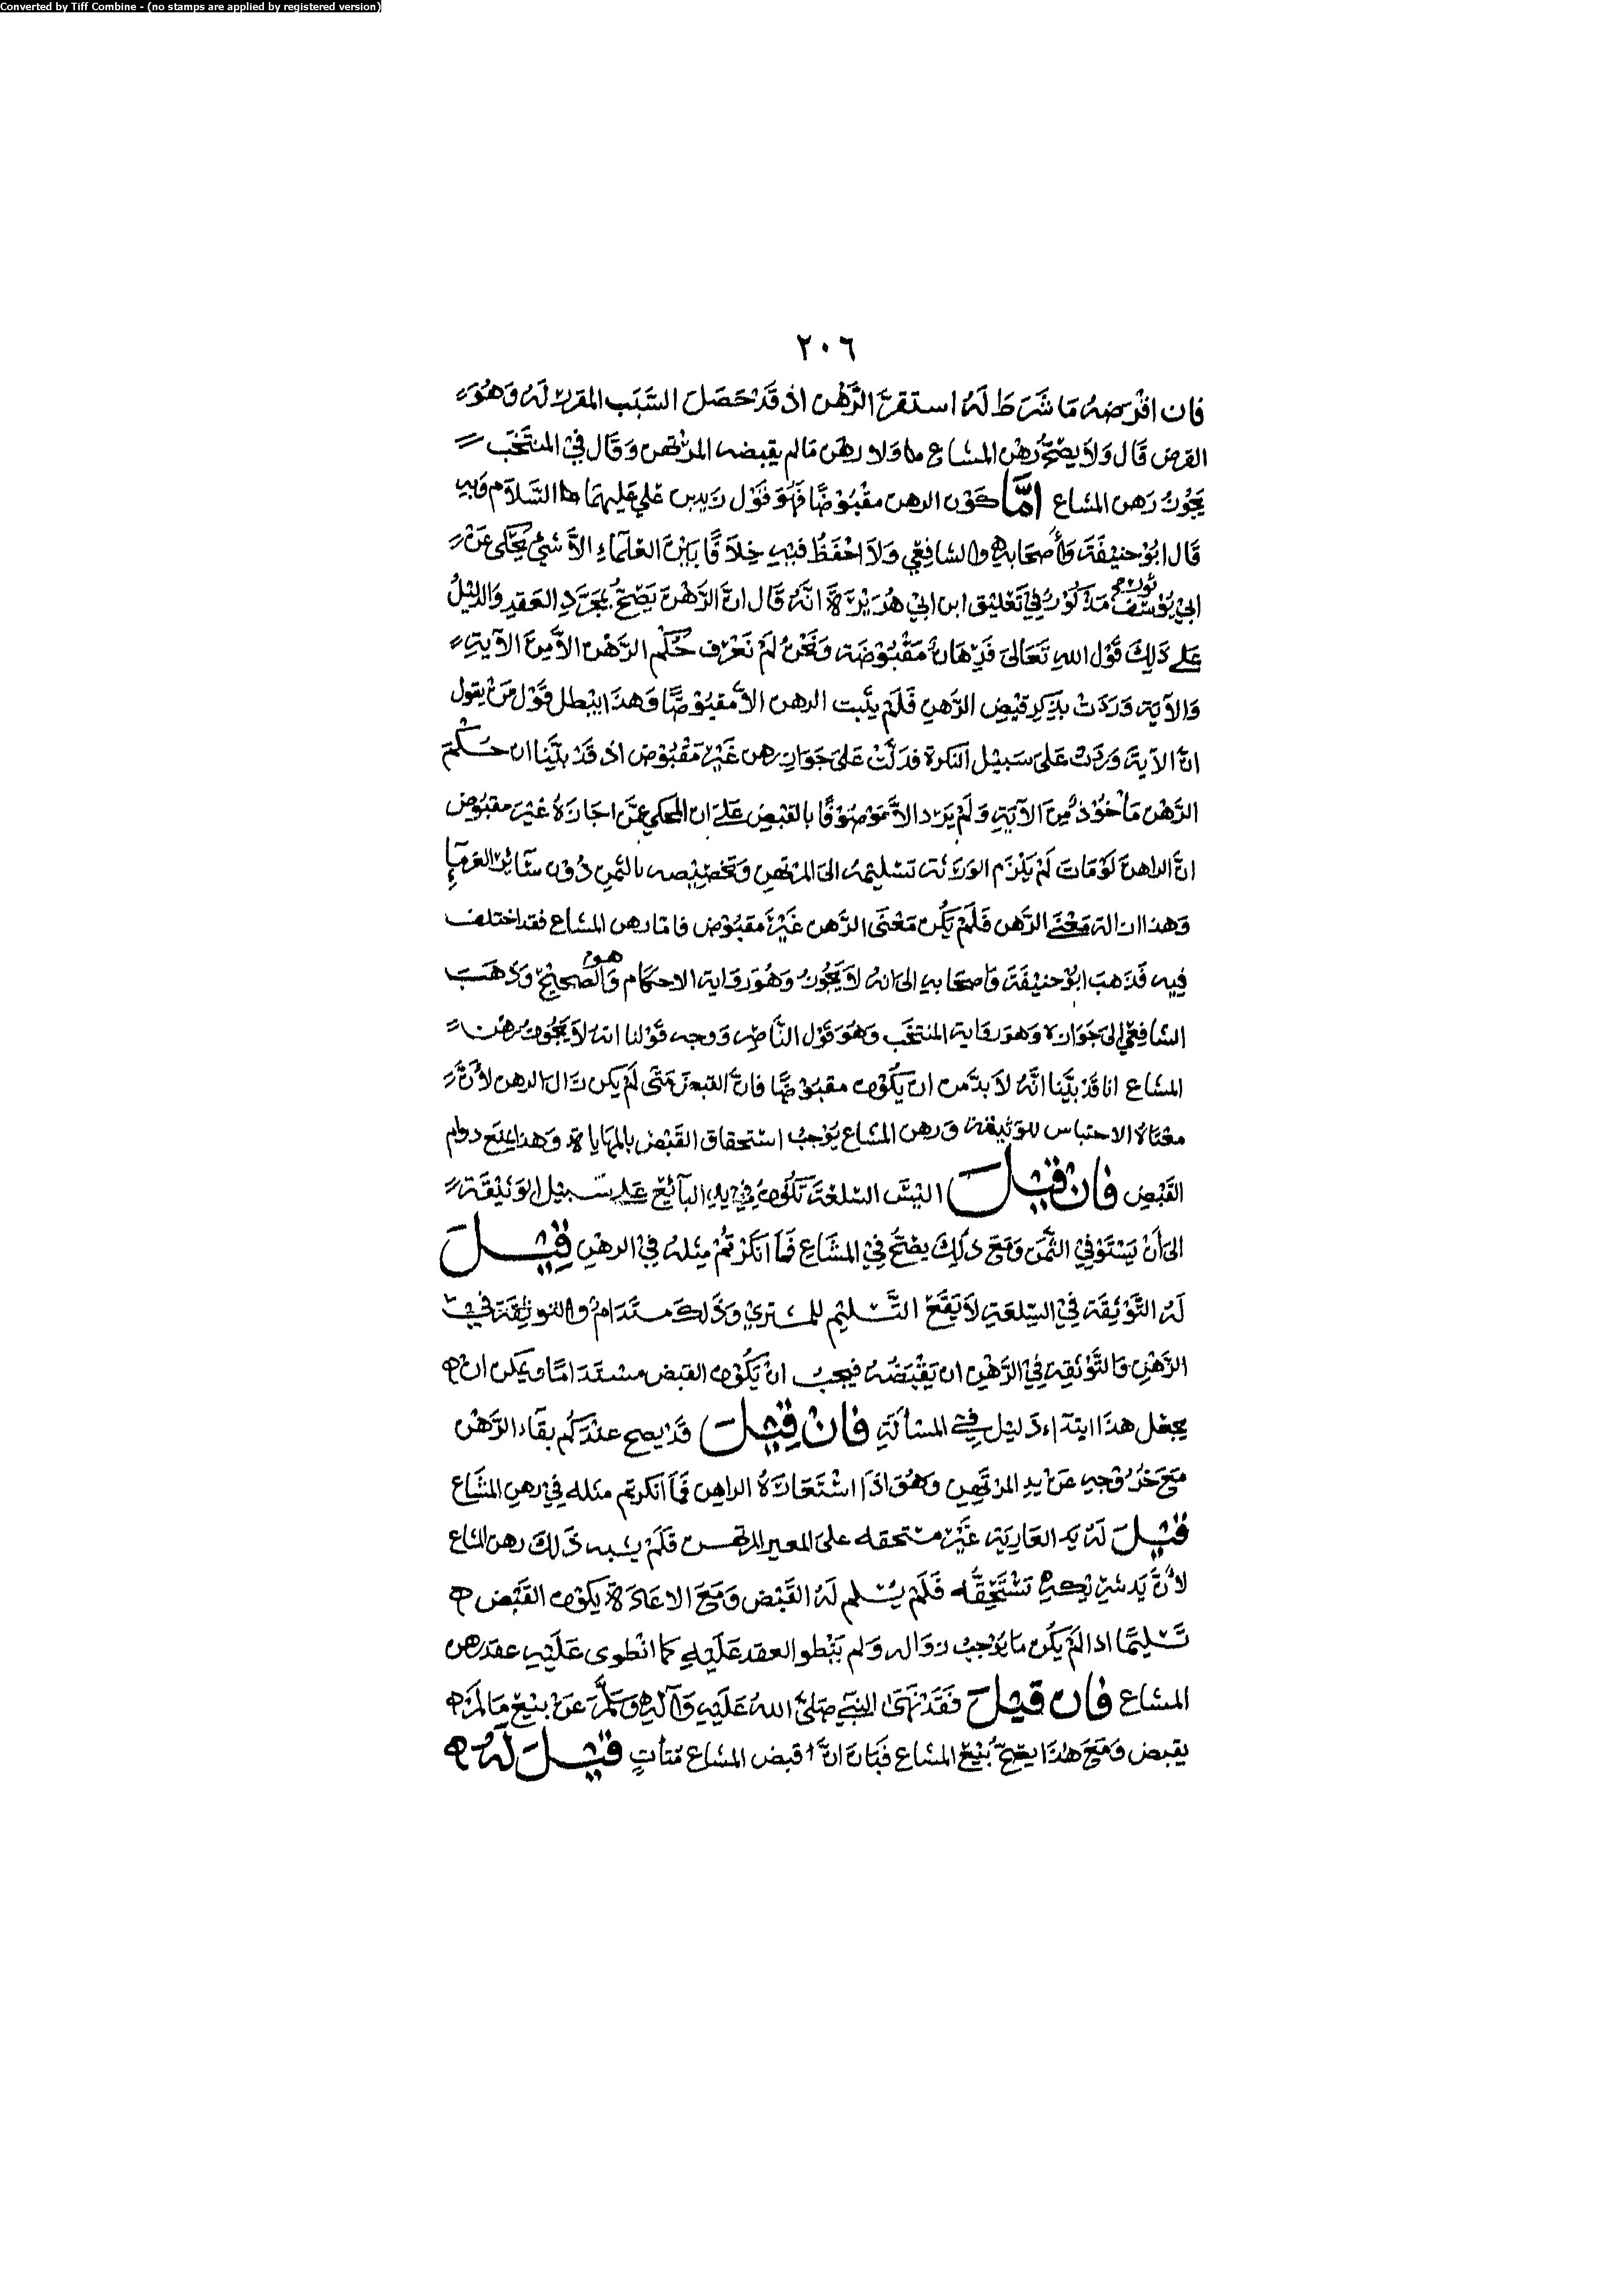 Converted by Tiff Combine - (no stamps are applied by registered version)
٢٠٦
فان اقرضه مَا شَرَطَ لَهُ استقرَّ الرَّهْن اذ قَدْ حَصَلَ السَّبَب المقرر لَهُ وَهُوَ
القرض قَال وَلاَ يصِحُّ رَهْن المشاع ولا رهن مَا لم يقبضه المرتهن وَقَال فيْ المنتخَب
يَجُوْزُ رَهن المشاع امَّا كَوْن الرهن مقْبُوْضًا فهُوَ قَوْل زيد بن عَلي عَليهمَا السَّلاَم وَبِهِ
قَال ابُوْ حَنيْفَةَ وَأصحَابه وَالشافِعِي وَلاَ احْفَظُ فيْهِ خِلاَفًا بَيْنَ العُلَمَاءِ الاَّ شَيْ يُحْكَى عَنْ
ابيْ يُوْسُفَ مَذكُوْرٌ فيْ تَعْليق ابن ابيْ هُرَيْرَةَ انَّهُ قَال انَّ الرَّهْنَ يَصِحُّ بمجَرَّدِ العَقدِ وَالدليْلُ
عَلى ذَلِكَ قَوْل اللهِ تَعَالىَ فَرِهَانٌ مَقْبُوْضَة وَنَحْنُ لَمْ نَعْرِف حُكْم الرَّهْن الاَّ مِنَ الآيَةِ
وَالآيَة وَرَدَتْ بِذِكِر قبْض الرَّهنِ فَلَمْ يثَبت الرهن الاَّ مقبُوْضًا وَهَذا يبْطل قَوْل مَنْ يقول
انَّ الآيَةَ وَرَدَتْ عَلىَ سَبيْل النكرة فدَلَّتْ عَلىَ جَوَاز رهن غَيْر مَقْبُوْض اذ قَدْ بيَّنا ان حُكْم
الرَّهْن مَأخُوْذٌ مِنَ الآيَةِ وَلَمْ يَرد الاَّ مَوْصُوْفًا بالقَبْضِ عَلىَ ان المحكي عَمَّن اجَازَهُ غيْر مقبوْض
انَّ الراهنَ لَوْ مَاتَ لَمْ يَلْزَم الوَرَثة تسْليْمُهُ الىَ المرْتهن وَتخصْيْصه بالثمنِ دُوْن سَائر الغرمَاء
وَهذا ازالة مَعْنَى الرَّهن فَلَمْ يكُن مَعْنَى الرَّهن غَيْرَ مقبُوْض فامّا رهن المشاع فقد اختلف
فِيه فَذهَبَ ابُوْ حَنيْفَةَ وَاصحَابه الىَ انه لاَ يَجُوْزُ وَهُوَ رِوَاية الاحكَام وَهُوَ الصحيْحُ وَذهَبَ
الشافِعِّي الىَ جَوَازه وَهوَ رِوَاية المنتخَب وَهُوَ قَوْل النَّاصِر وَوجه قَوْلنا انه لاَ يَجُوْزُ رَهْن
المشاع انا قَدْ بيَّنا انَّهُ لاَ بدَّ من ان يَكُوْن مقبوْضًا فانَّ القبضَ متَى لَمْ يَكن زَال الرهن لأنَّ
معْنَاهُ الاحتباس للوَثيْقَة وَرهن المشَاع يُوْجبُ استحقاق القَبْض بالمهَايَاة وَهذا يمنع دوَام
القَبْضِ فان قِيْلَ اليْسَ السِّلعَةَ تكُوْنُ فيْ يدِ البَائِع عَلىَ سَبيْل الوَثيْقَة
الىَ أنْ يَسْتَوْفيِ الثَّمَنَ وَمَعَ ذلِكَ يصِحُّ فيْ المشَاعِ فَما انكَرْتُمْ مثلَهُ فيْ الرهْن قِيْلَ
لَهُ التَّوْثِقَة فيْ السِّلعَةِ لاَ يَقَعُ التَّسْليْم للمشتريْ وَذلكَ مستَدَام وَالتوثِقَة في
الرَّهْنِ وَالتَّوْثِقة فيْ الرَّهْنِ ان يَقْبضَهُ فيَجبُ انْ يَكُوْن القبض مسْتَدامًا وَيمكن انْ
يجعَل هَذا ابتدَاءَ دَليل في المسْألةِ فانْ قِيْلَ قَدْ يصح عنْدكُم بقَاء الرَّهْن
مَعَ خُرُوْجِهِ عَنْ يدِ المرتَهِن وَهُوَ اذَا اسْتَعَارَهُ الراهِن فَمَا انكرتم مثله فيْ رهن المشَاع
قيْلَ لَهُ يَد العَاريَة غَيْر مستحقه عَلىَ المعير المرتهن فَلَمْ يشبه ذَلكَ رهن المشاع
لأنَّ يَد شريْكهِ تسْتَحِقُّه فَلَمْ يسْلم لَهُ القَبْض وَمَعَ الاعَارَة يَكوْن القَبْض
تَسْليْمًا اذا لَمْ يَكُن مَا يُوْجبُ زوَاله وَلم يَنْطو العقد عَلَيْهِ كمَا انْطوى عَلَيْهِ عقد رَهن
المشَاع فَان قيْلَ فَقَدْ نهَىَ النَّبيُ صَلىَّ اللهُ عَلَيْهِ وَآلِهِ وَسَلَّمَ عَنْ بيْع مَا لَمْ
يقبض وَمَعَ هَذا يَصِحُّ بَيْعُ المشَاع فَبَانَ انَّ قبض المشاع مُتَأتٍ قيْلَ لَهُ